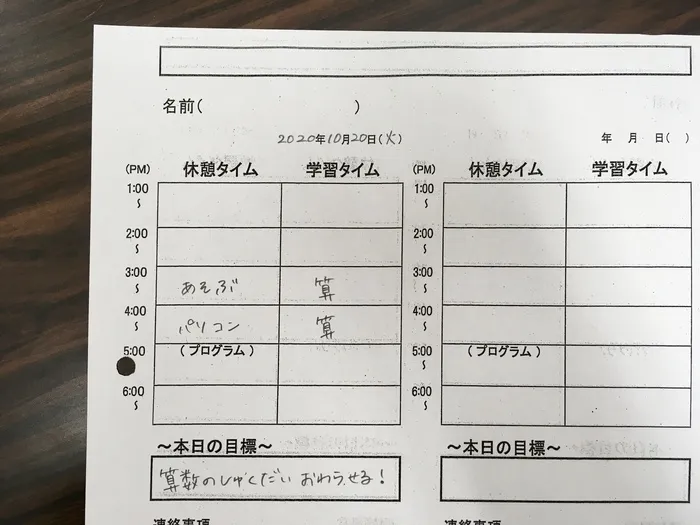 名前(　　　　)
2020年10月20日(火)　年　月　日(　)
(PM) 休憩タイム 学習タイム (PM) 休憩タイム 学習タイム
1:00 1:00
〜 〜
2:00 2:00
〜 〜
3:00 あそぶ 算 3:00
〜 〜
4:00 パソコン 算 4:00
〜 〜
5:00 (プログラム) 5:00 (プログラム)
〜
6:00 6:00
〜 〜
〜本日の目標〜 〜本日の目標〜
算数のしゅくだいおわらせる!
連絡事項 連絡事項